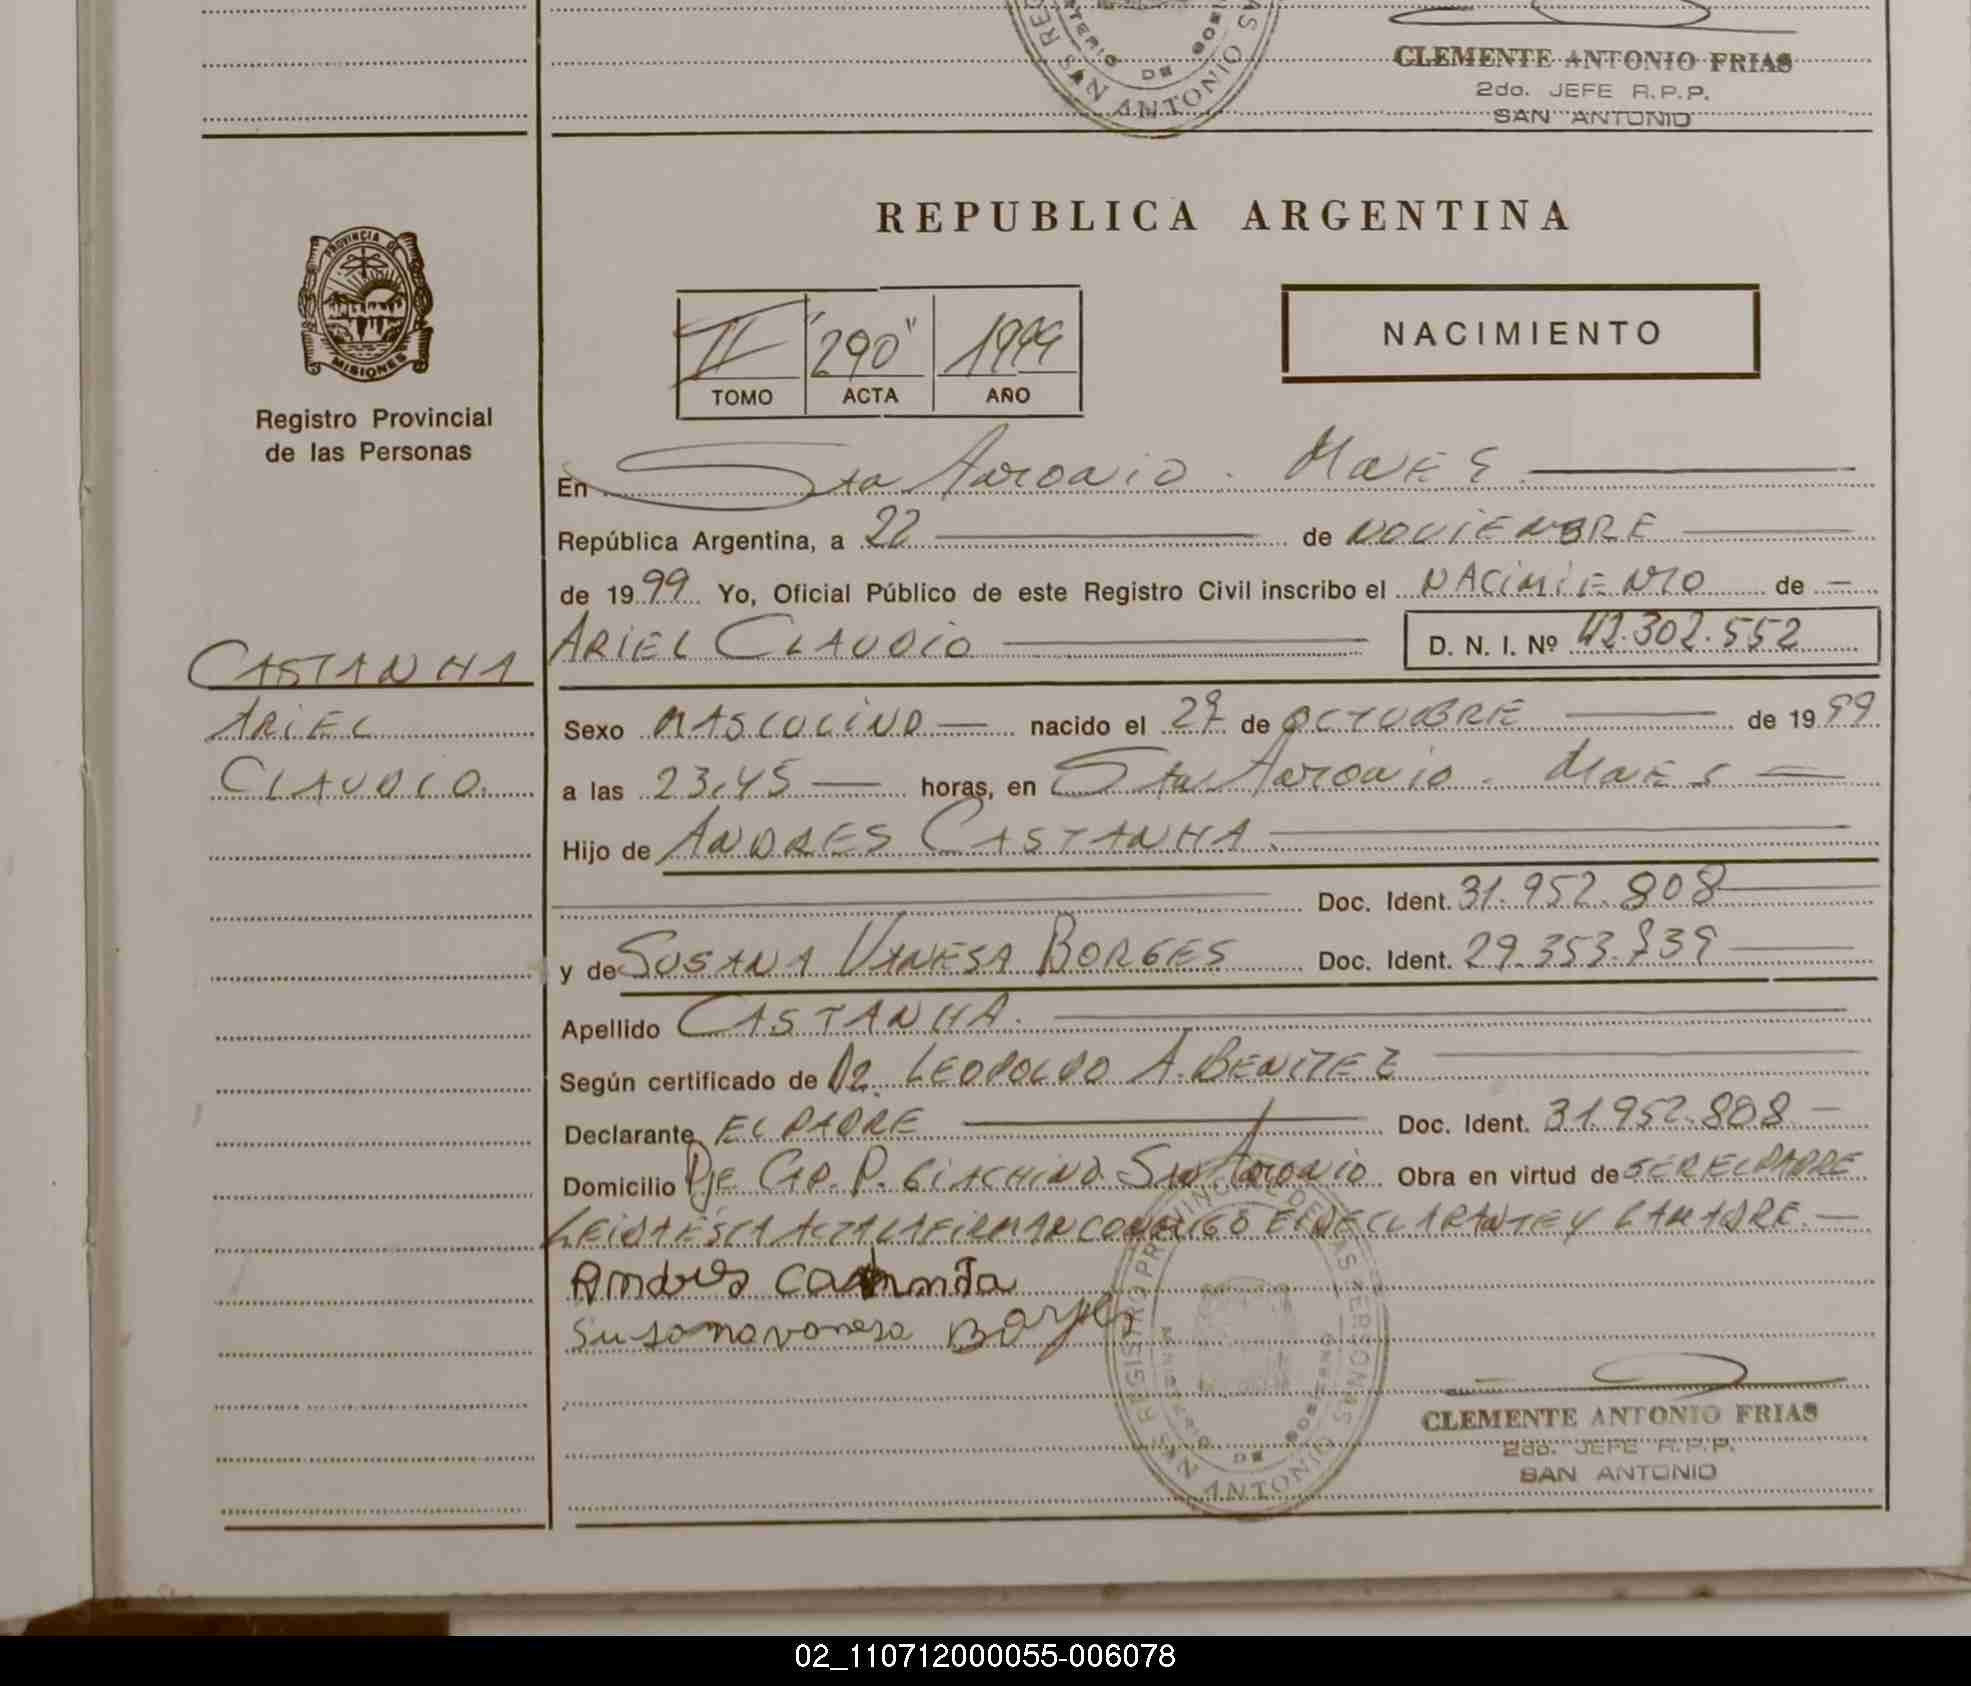 CLEMENTE ANTONIO FRIAS
2do. JEFE R.P.P.
SAN ANTONIO
PROVINCIA DE
MISIONES
Registro Provincial
de las Personas
REPUBLICA ARGENTINA
II "290" 1999
TOMO ACTA AÑO
NACIMIENTO
En San Antonio - Mnes
República Argentina, a 22 de NOVIEMBRE
de 1999 Yo, Oficial Público de este Registro Civil inscribo el NACIMIENTO de
ARIEL CLAUDIO D. N. I. Nº 42.302.552
CASTANHA
ARIEL
CLAUDIO
Sexo MASCULINO nacido el de OCTUBRE de 1999
a las 23,45 horas, en San Antonio - Mnes
Hijo de ANDRES CASTANHA
Doc. Ident. 31.952.808
y de SUSANA VANESA BORGES Doc. Ident.
Apellido CASTANHA
Según certificado de Dr. LEOPOLDO A. BENITEZ
Declarante EL PADRE Doc. Ident. 31.952.808
Domicilio Pje CAP. P. GIACHINO San Antonio Obra en virtud de SER EL PADRE
LEIDA ESTA ACTA LA FIRMAN CONMIGO EL DECLARANTE Y LA MADRE.
Andres
Susana vanesa Borges
REGISTRO PROVINCIAL DE LAS PERSONAS
MINISTERIO DE GOBIERNO
SAN ANTONIO
CLEMENTE ANTONIO FRIAS
2do. JEFE R.P.P.
SAN ANTONIO
02_110712000055-006078